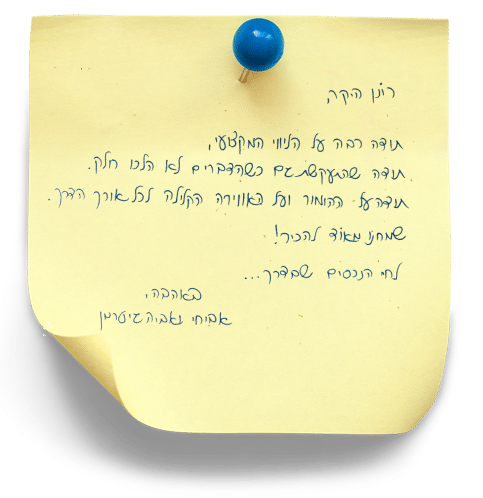 רונן היקר,
תודה רבה על הליווי המקצועי,
תודה שהתעקשת גם כשהדברים לא הלכו חלק.
תודה על ההומור ועל האווירה הקלילה לכל אורך הדרך.
שמחנו מאוד להכיר!
לחיי הנכסים שבדרך...
באהבה,
אביחי ואביה גיטרמן